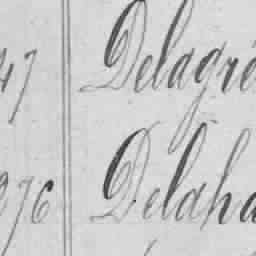 47 Delagré
276 Delaha